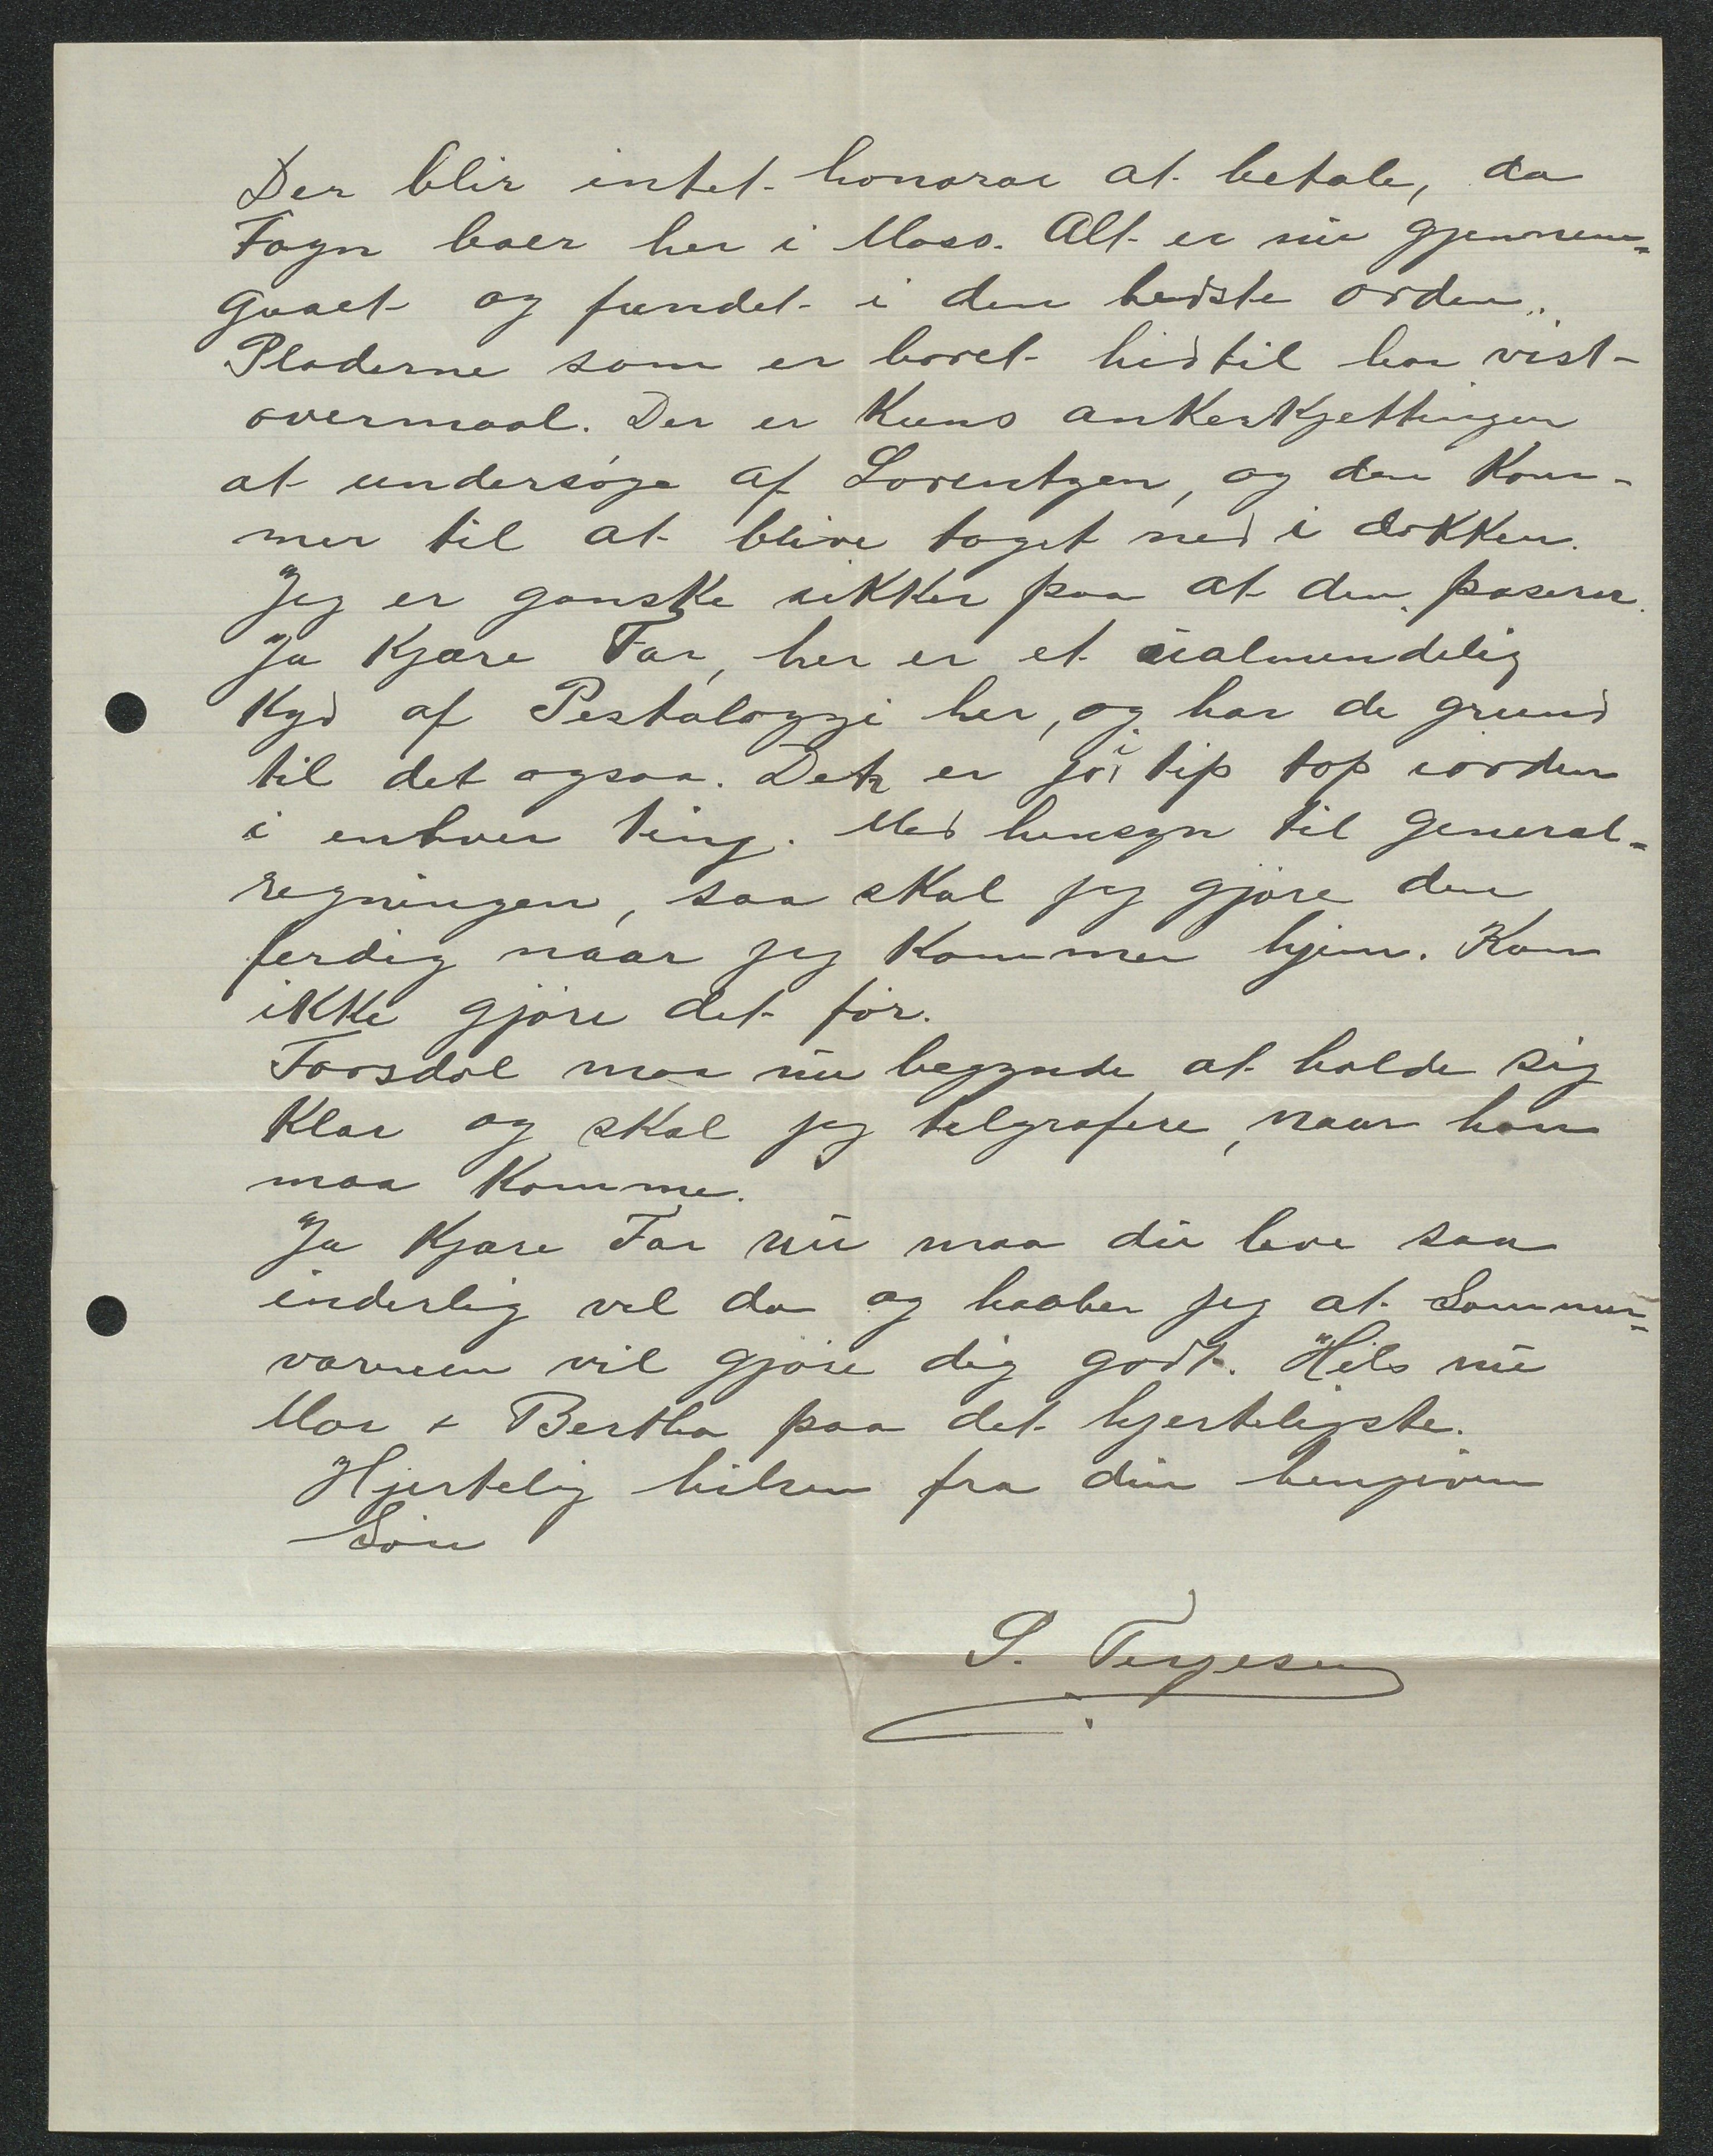 Der blir intet honorar at betale, da
Fogn boer her i Moss. Alt er nu gjennem-
gaaet og fundet i den bedste orden.
Pladerne som er boret hidtil har vist
overmaal. Der er kuns ankerkjettingen
at undersøge af Lorentzen, og den kom-
mer til at blive taget ned i dokken.
Jeg er ganske sikker paa at den paserer.
Ja kjære Far, her er et ualmendelig
Kyd af Pestalozzi her, og har de grund
til det ogsaa. Det er jo i tip top iorden
i enhver ting. Med hensyn til General-
regningen, saa skal jeg gjøre den
ferdig naar jeg kommer hjem. Kan
ikke gjøre det før.
Forsdal maa nu begynde at holde sig
klar og skal jeg telgrafere, naar han
maa komme.
Ja kjære Far nu maa du leve saa
inderlig vel da og haaber jeg at Sommer-
varmen vil gjøre dig godt. Hils nu
Mor + Bertha paa det hjerteligste.
Hjertelig hilsen fra din hengivne
Søn
S. Terjesen